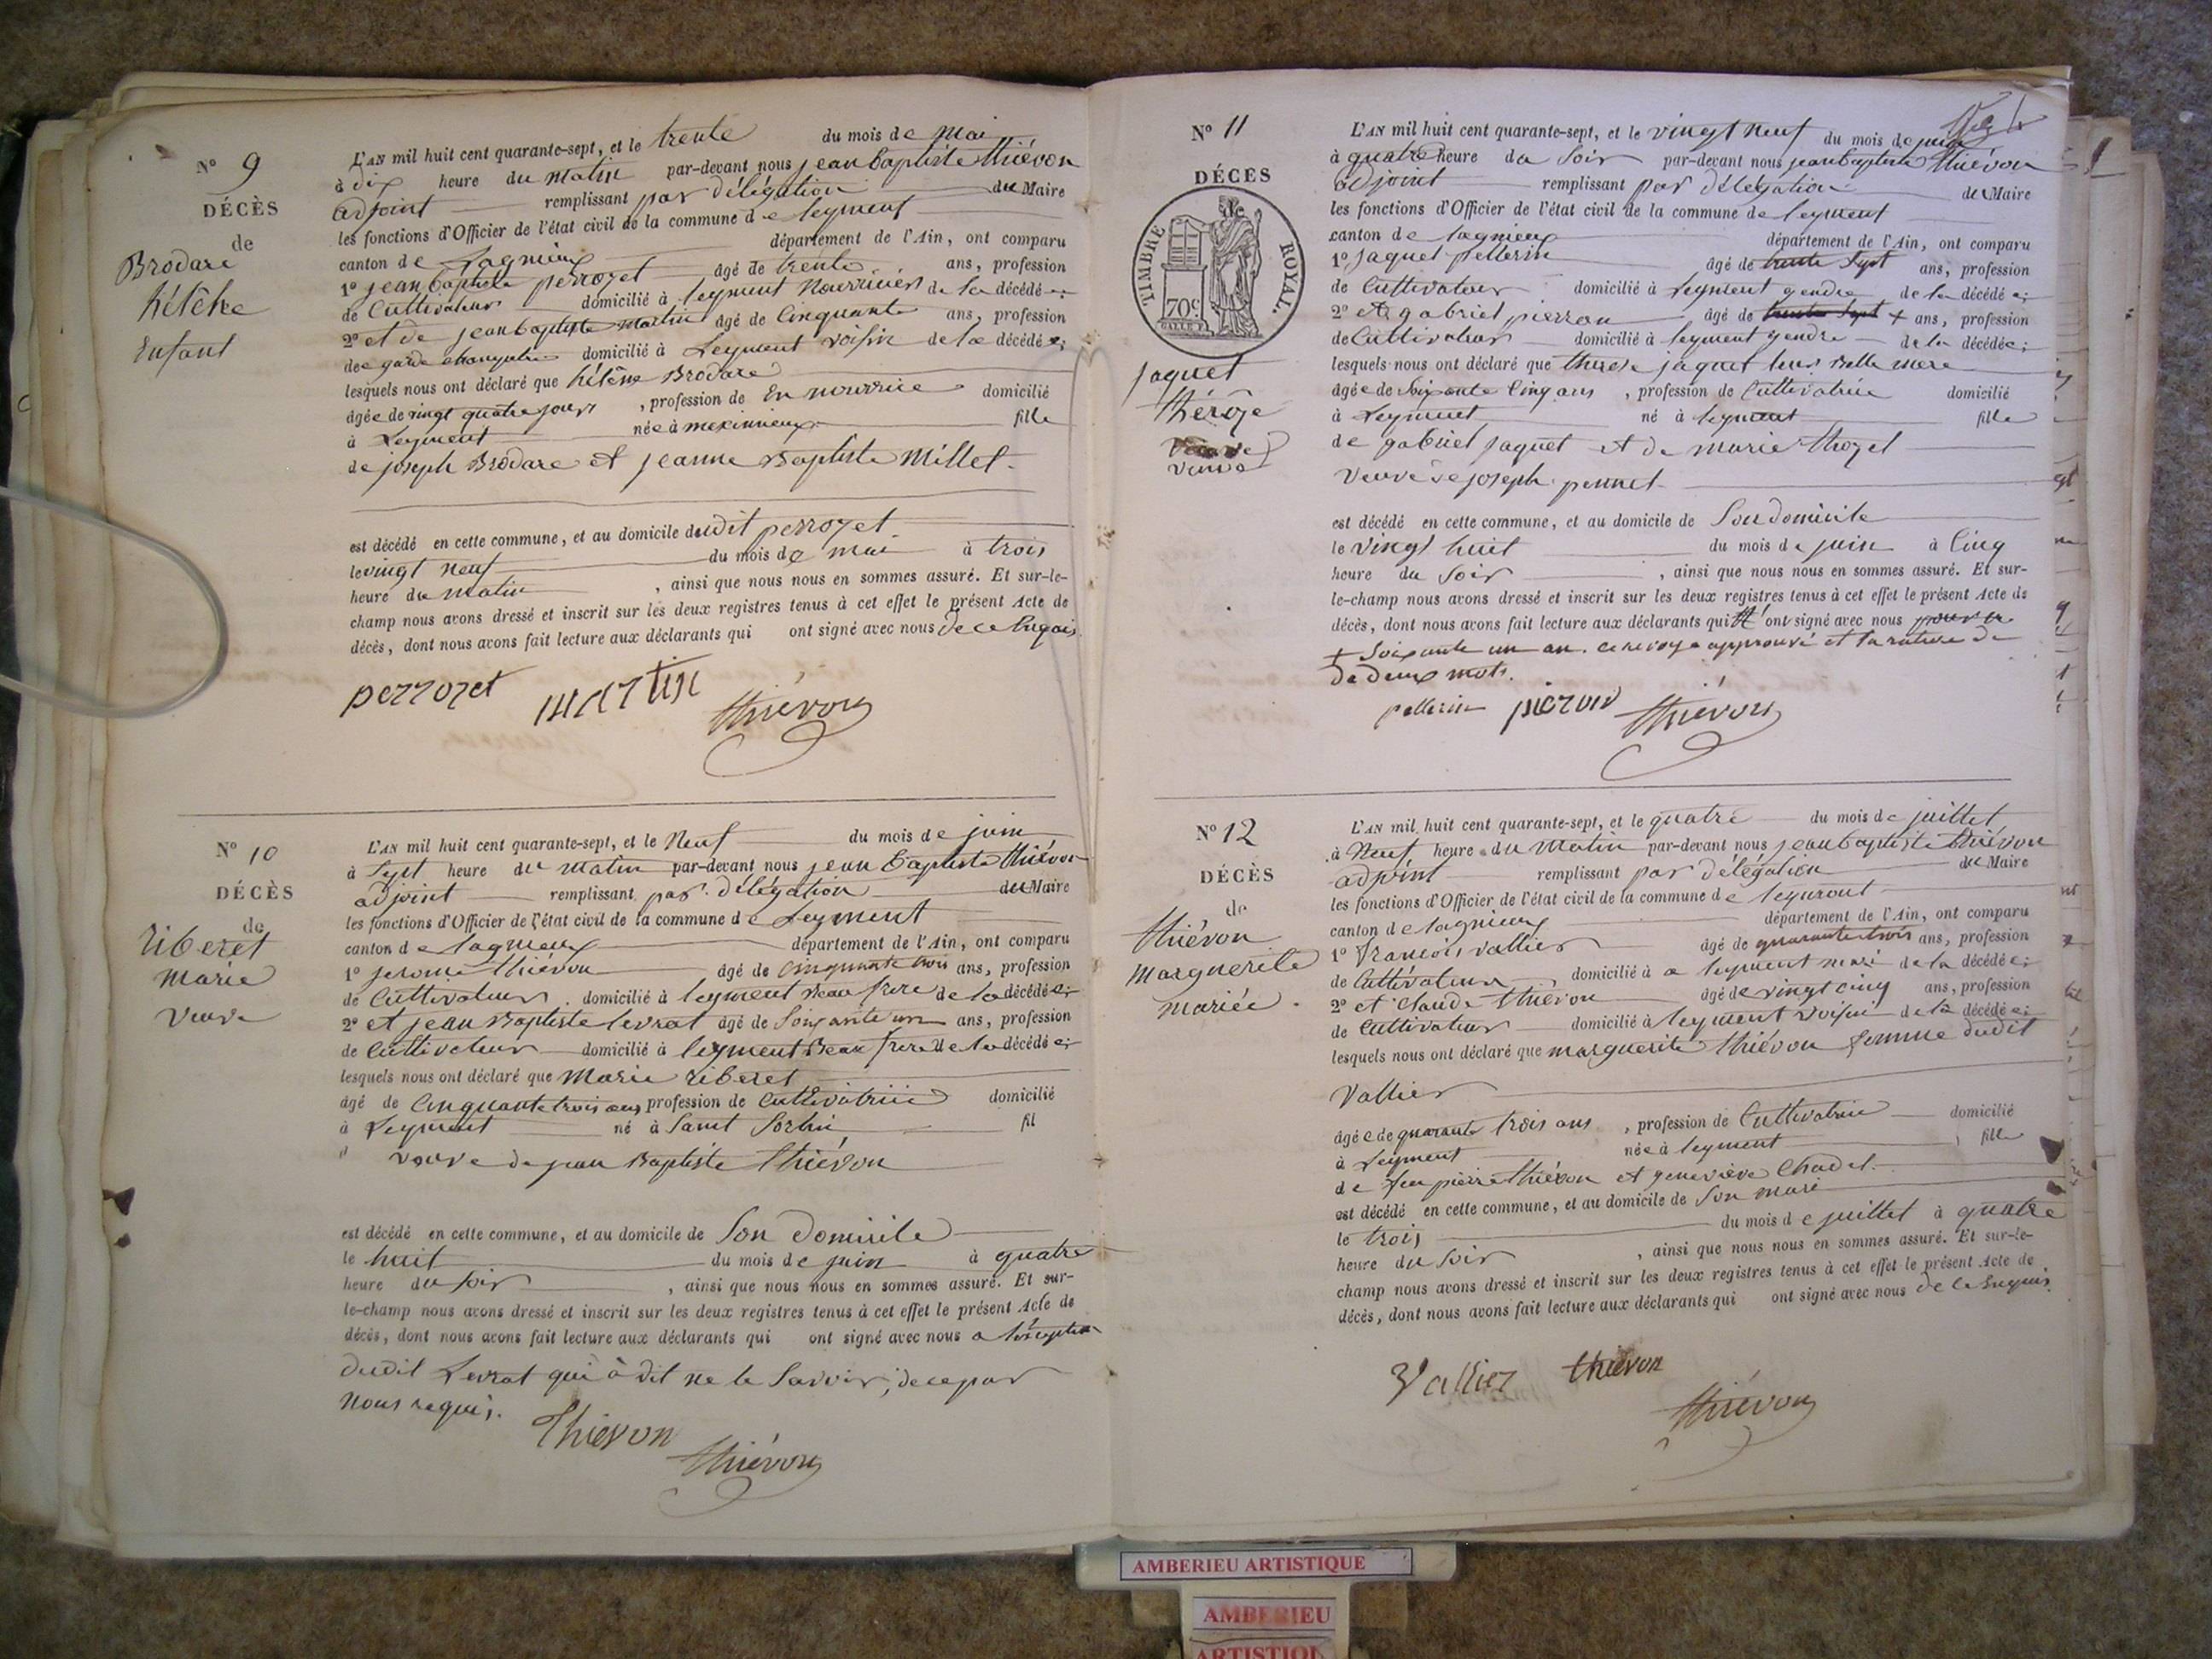 N° 9
DÉCÈS
de
Brodare
hélène
Enfant
L'AN mil huit cent quarante-sept, et le trente du mois de Mai
à dix heure du matin par-devant nous jean baptiste thiévon
adjoint remplissant par délégation du Maire
les fonctions d'Officier de l'état civil de la commune de leyment
canton de Lagnieu département de l'Ain, ont comparu
1° jean baptiste perrozet âgé de trente ans, profession
de Cultivateur domicilié à leyment nourricier de la décédée;
2° et de jean baptiste martin âgé de Cinquante ans, profession
de garde champetre domicilié à Leyment voisin de la décédée;
lesquels nous ont déclaré que hélène Brodare
âgée de vingt quatre jours, profession de En nourrice domicilié
à Leyment née à meximieux fille
de joseph Brodare et jeanne Baptiste Millet
est décédé en cette commune, et au domicile dudit perrozet
le vingt neuf du mois de mai à trois
heure du matin, ainsi que nous nous en sommes assuré. Et sur-le-
champ nous avons dressé et inscrit sur les deux registres tenus à cet effet le présent Acte de
décès, dont nous avons fait lecture aux déclarants qui ont signé avec nous de ce Requis.
perrozet martin thiévon
N° 10
DÉCÈS
de
Riberet
Marie
Veuve
L'AN mil huit cent quarante-sept, et le Neuf du mois de juin
à Sept heure du matin par-devant nous jean Baptiste thiévon
adjoint remplissant par délégation du Maire
les fonctions d'Officier de l'état civil de la commune de Leyment
canton de lagnieux département de l'Ain, ont comparu
1° jerome thiévon âgé de Cinquante trois ans, profession
de Cultivateur domicilié à leyment Beau frere de la décédée;
2° et jean Baptiste levrat âgé de Soixante un ans, profession
de Cultivateur domicilié à leyment Beau frere de la décédée;
lesquels nous ont déclaré que Marie riberet
âgé de Cinquante trois ans profession de Cultivatrice domicilié
à Leyment né à Saint Sorlin fil
veuve de jean Baptiste thiévon
est décédé en cette commune, et au domicile de Son domicile
le huit du mois de juin à quatre
heure du soir, ainsi que nous nous en sommes assuré. Et sur-
le-champ nous avons dressé et inscrit sur les deux registres tenus à cet effet le présent Acte de
décès, dont nous avons fait lecture aux déclarants qui ont signé avec nous a l'éxception
dudit Levrat qui à dit ne le Savoir, de ce par
nous requis.
Thievon thiévon
N° 11
DÉCÈS
de
TIMBRE ROYAL.
70c
jaquet
thérèze
veuve
L'AN mil huit cent quarante-sept, et le vingt neuf du mois de juin
à quatre heure du Soir par-devant nous jean baptiste thiévon
adjoint remplissant par délégation du Maire
les fonctions d'Officier de l'état civil de la commune de leyment
canton de lagnieux département de l'Ain, ont comparu
1° jaquet pellerin âgé de trente Sept ans, profession
de Cultivateur domicilié à Leyment gendre de la décédée;
2° et gabriel pierron âgé de trente Sept + ans, profession
de Cultivateur domicilié à leyment gendre de la décédée;
lesquels nous ont déclaré que therese jaquet leur Belle mere
âgée de Soixante Cinq ans, profession de Cultivatrice domicilié
à Leyment né à leyment fille
de gabriel jaquet et de marie throzet
Veuve de joseph pennet
est décédé en cette commune, et au domicile de Son domicile
le vingt huit du mois de juin à Cinq
heure du Soir, ainsi que nous nous en sommes assuré. Et sur-
le-champ nous avons dressé et inscrit sur les deux registres tenus à cet effet le présent Acte de
décès, dont nous avons fait lecture aux déclarants qui ont signé avec nous
+ Soixante un an. ce renvoye approuvé et la rature de
de deux mots.
pellerin pieron thiévon
N° 12
DÉCÈS
de
thiévon
marguerite
mariée
L'AN mil huit cent quarante-sept, et le quatre du mois de juillet
à Neuf heure du Matin par-devant nous jean baptiste thiévon
adjoint remplissant par délégation du Maire
les fonctions d'Officier de l'état civil de la commune de leyment
canton de lagnieux département de l'Ain, ont comparu
1° francois vallier âgé de quarante trois ans, profession
de Cultivateur, domicilié à a leyment mari de la décédée;
2° et Claude thiévon âgé de vingt cinq ans, profession
de Cultivateur domicilié à leyment voisin de la décédée;
lesquels nous ont déclaré que marguerite thiévon femme dudit
Vallier
âgée de quarante trois ans, profession de Cultivatrice domicilié
à Leyment née à leyment, fille
de feu pierre thiévon et geneviève Chadel
est décédé en cette commune, et au domicile de Son mari
le trois du mois de juillet à quatre
heure du soir, ainsi que nous nous en sommes assuré. Et sur-le-
champ nous avons dressé et inscrit sur les deux registres tenus à cet effet le présent Acte de
décès, dont nous avons fait lecture aux déclarants qui ont signé avec nous de ce Requis.
Vallier thiévon
thiévon
AMBERIEU ARTISTIQUE
AMBERIEU
ARTISTIQ